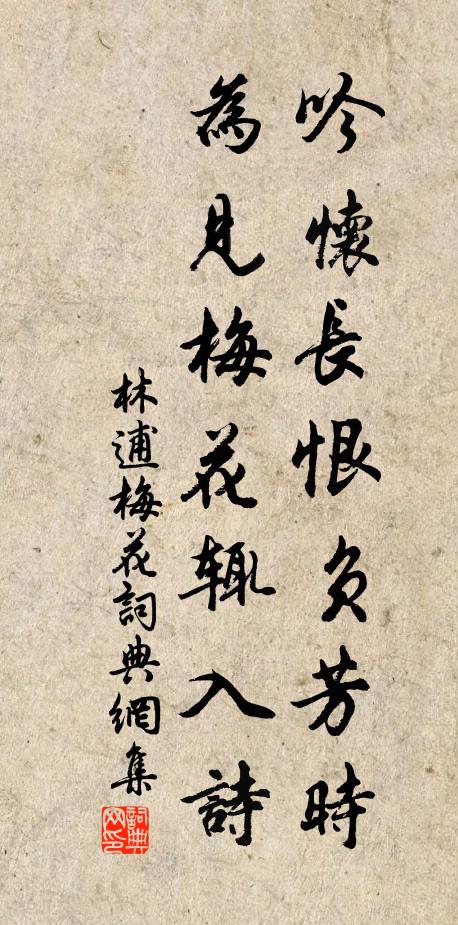 吟懷長恨負芳時
為見梅花輒入詩
林逋梅花詞典網集
詞典網印